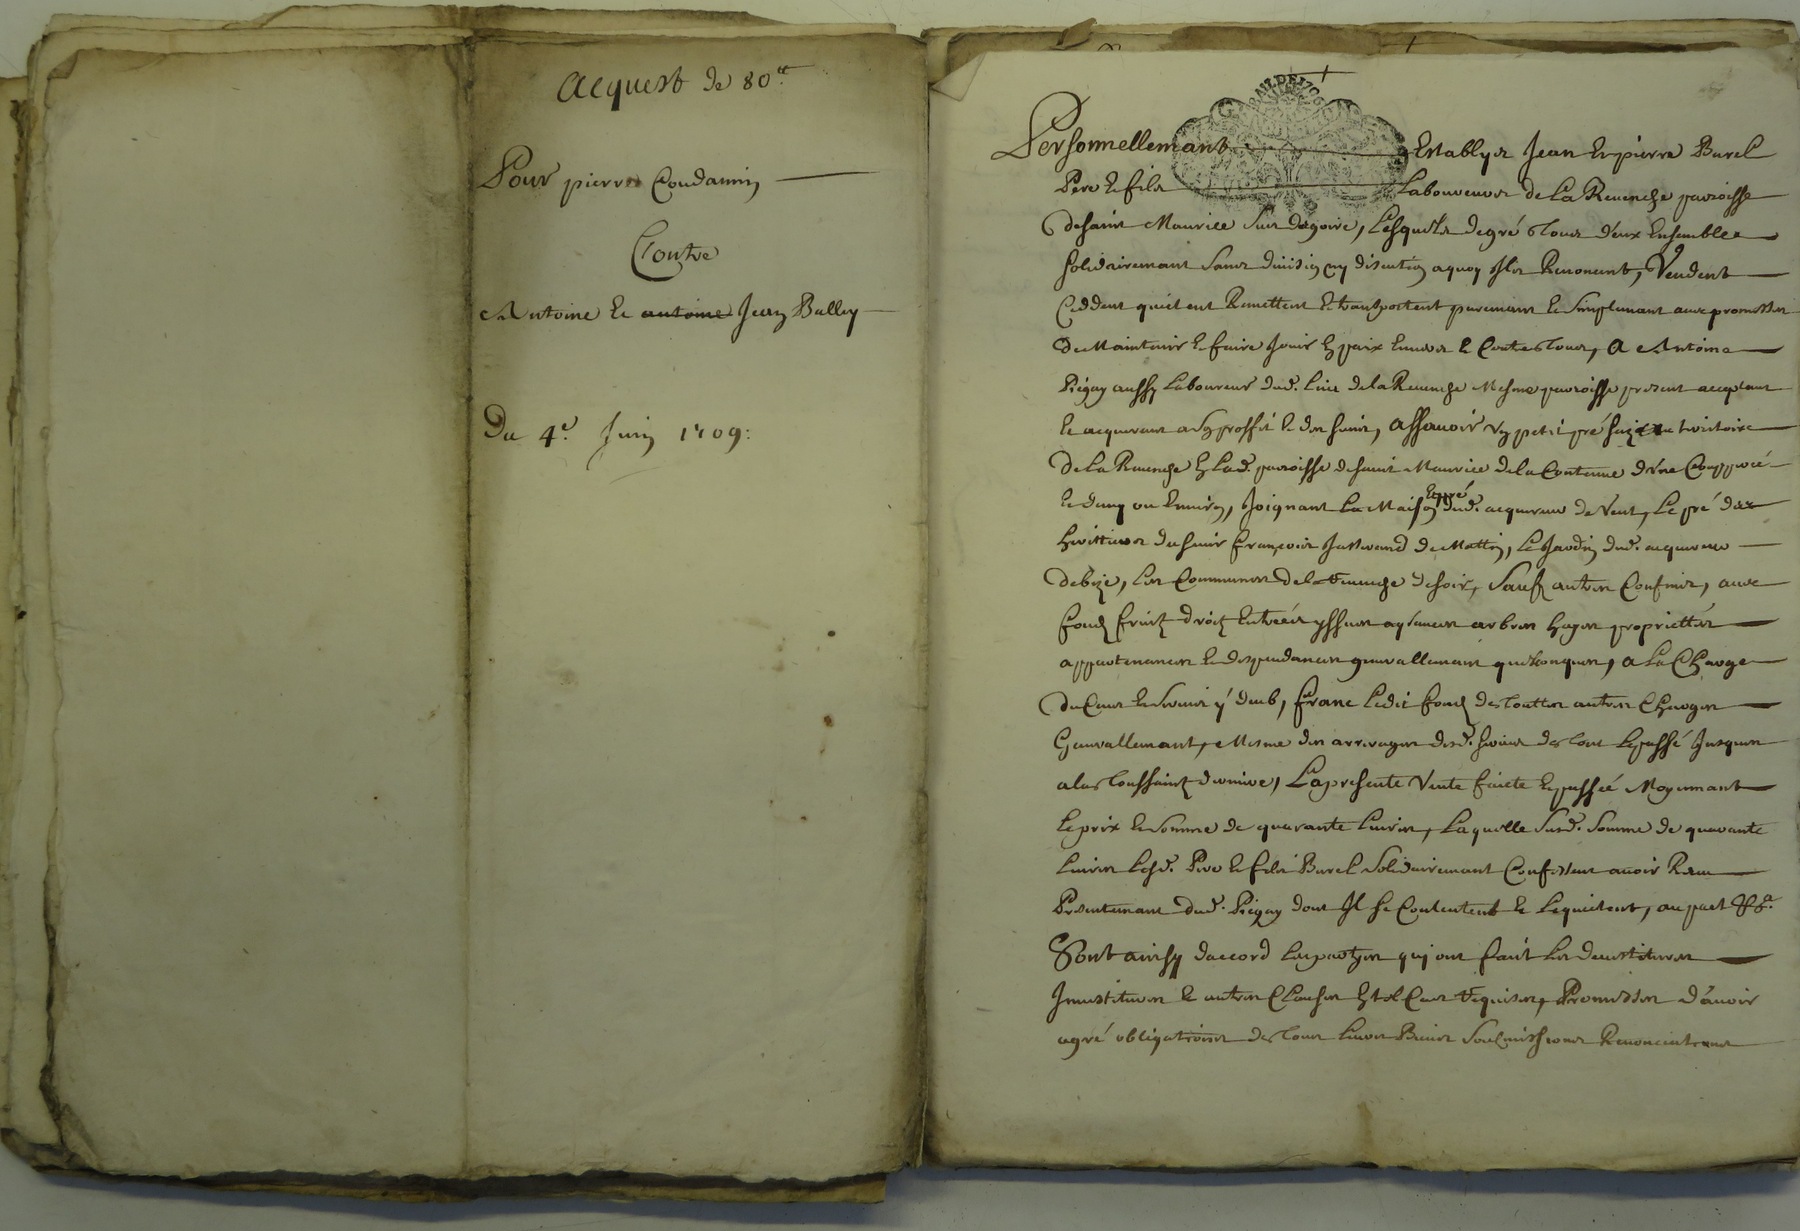 Acquest de 80ᵗᵗ
Pour pierre Coudamin
Contre
Antoine et antoine Jean Balley
Du 4ᵉ. Juin 1709:
Personnellemant Establys Jean et pierre Burel
Pere et fils Laboureurs de La Revenche parroisse
de saint Maurice sur dargoire, Lesquels de gré tous deux Ensemble
solidairemant sans division ny discution a quoy Ils Renoncent, Vendent
Ceddent quictent Remettent et transportent puremant et simplemant avec promesses
de Maintenir et faire Jouir en paix Envers et Contre tous, A Antoine
Piégay aussy Laboureur dud. Lieu de la Revenche Mesme parroisse present acceptant
et acquerant a son proffit et des siens, Assavoir un petit pré scizé au territoire
de La Revenche en lad. parroisse de saint Maurice de la Contenue d'une Coupperée
et demy ou Environ, Joignant La Maison et pré dud. acquereur de vent, Le pré des
heritiers du sieur François Jasserand de Mattin, Le Jardin dud. acquereur
de bize, Les Communes de la Revenche de soir, sauf autres Confins, avec
fond fruict droict Entrées yssues aysances arbres hayes proprietés
appartenances et deppendances generallemant quelconques, A La Charge
du Cens et servis y deub, franc Ledit fond de touttes autres Charges
Generallemant, Mesme des arrerages desd. servis de tout Le passé Jusques
a la toussainct derniere, La presente Vente faicte et passée Moyennant
Le prix et somme de quarante Livres, Laquelle susd. somme de quarante
Livres Lesd. Pere et fils Burel solidairemant Confessent avoir Receu
Presentemant dud. Piégay dont Il se Contentent et Le quictent, au pact &a.
Sont ainsy daccord Les partyes qui ont faict Les devestitures
Investitures et autres Clauses en tel Cas requises, Promesses d'avoir
agré obligations de tous Leurs Biens soubmissions Renonciations